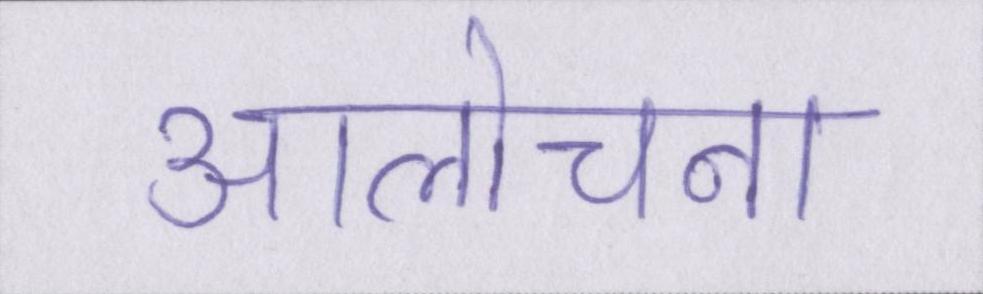 आलोचना